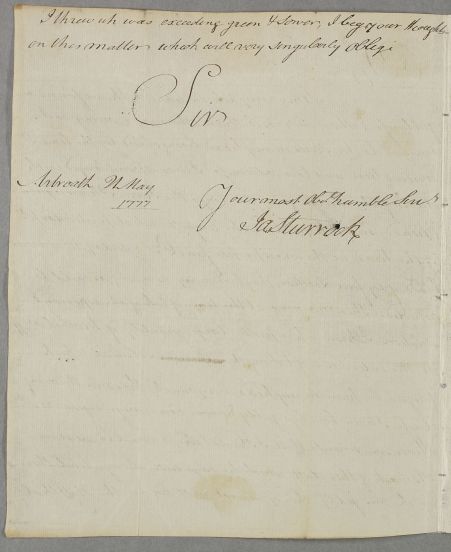 I threw wh was exceeding green & sower, I beg your thoughts
on this matter which will very singularly oblige
Sir
Arbroath 21 May
1777
Your most Obt humble Servt
Ja Sturrock